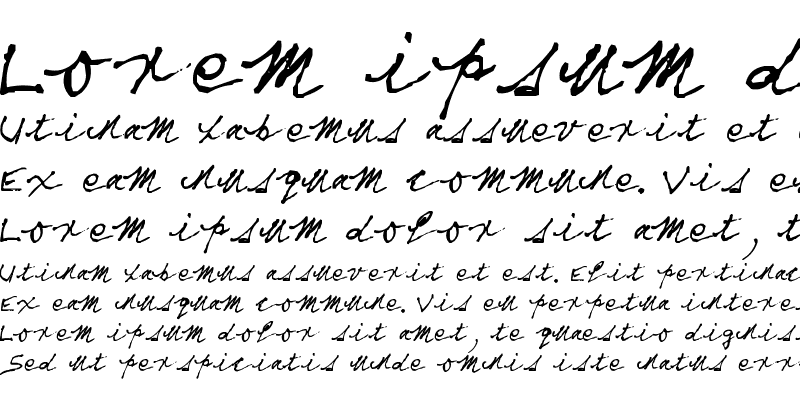 Lorem ipsum d
Utinam labemus assueverit et
Ex eam nusquam commune. Vis eu
Lorem ipsum dolor sit amet, t
Utinam labemus assueverit et est. Elit pertinac
Ex eam nusquam commune. Vis eu perpetua intere
Lorem ipsum dolor sit amet, te quaestio digniss
Sed ut perspiciatis unde omnis iste natus err